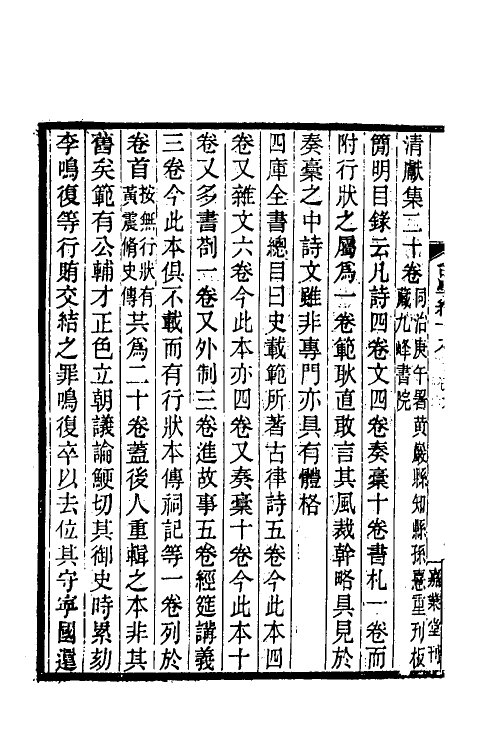 清獻集二十卷 同治庚午署黃巖縣知縣孫憙重刊板藏九峰書院
簡明目錄云凡詩四卷文四卷奏稾十卷書札一卷而
附行狀之屬爲一卷範耿直敢言其風裁幹略具見於
奏稾之中詩文雖非專門亦具有體格
四庫全書總目曰史載範所著古律詩五卷今此本四
卷又雜文六卷今此本亦四卷又奏稾十卷今此本十
卷又多書劄一卷又外制三卷進故事五卷經筵講義
三卷今此本俱不載而有行狀本傳祠記等一卷列於
卷首 按無行狀有黃震脩史傳 共爲二十卷蓋後人重輯之本非其
舊矣範有公輔才正色立朝議論鯁切其御史時累劾
李鳴復等行賄交結之罪鳴復卒以去位其守寧國還
嘉業堂刊